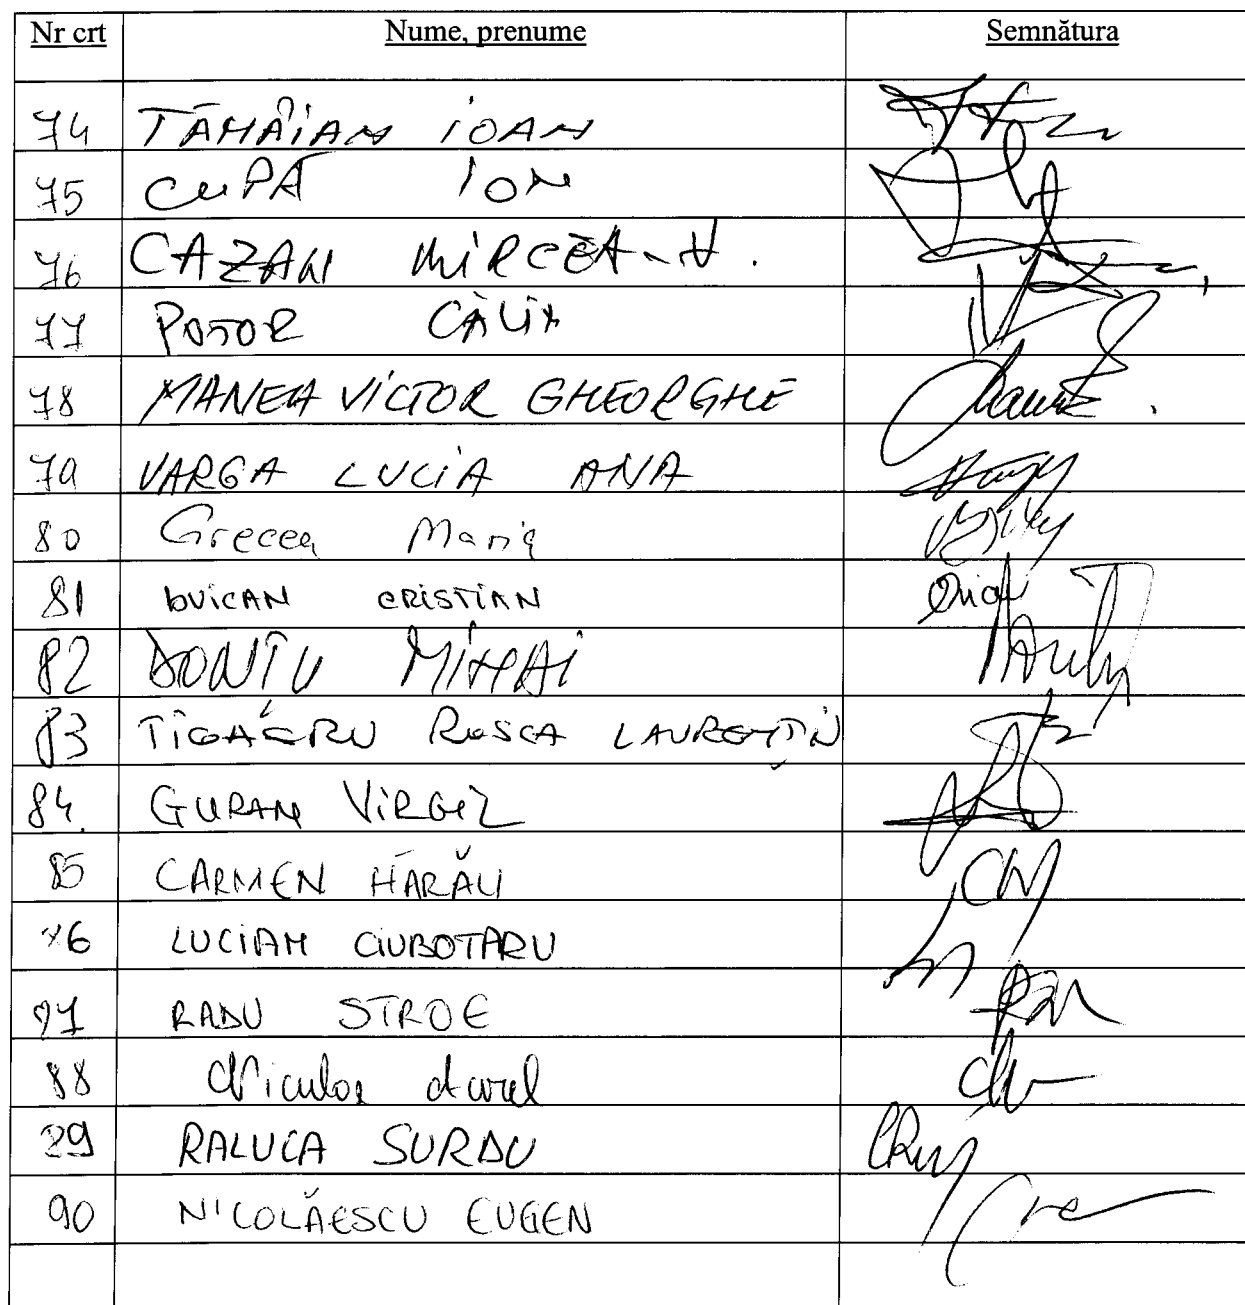 Nr crt Nume, prenume Semnătura
74 TĂMÂIAN IOAN
75 CUPĂ ION
76 CAZAN MIRCEA-V.
77 POTOR CĂLIN
78 MANEA VICTOR GHEORGHE
79 VARGA LUCIA ANA
80 Grecea Maria
81 BUICAN CRISTIAN
82 DONTU MIHAI
83 ȚIGĂERU ROȘCA LAURENȚIU
84. GURAN VIRGIL
85 CARMEN HĂRĂU
86 LUCIAN CIUBOTARU
87 RADU STROE
88 Niculae Aurel
89 RALUCA SURDU
90 NICOLĂESCU EUGEN